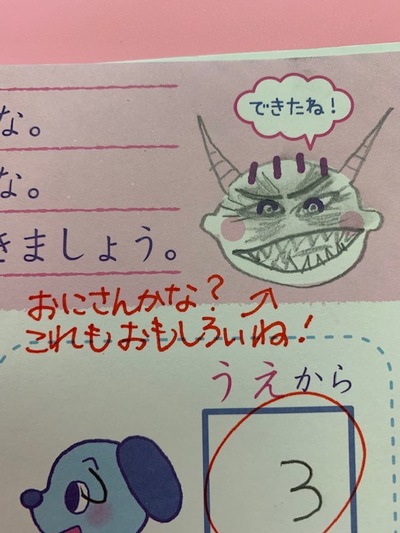 できたね!
な。
な。
きましょう。
おにさんかな?
これもおもしろいね!
うえから
3